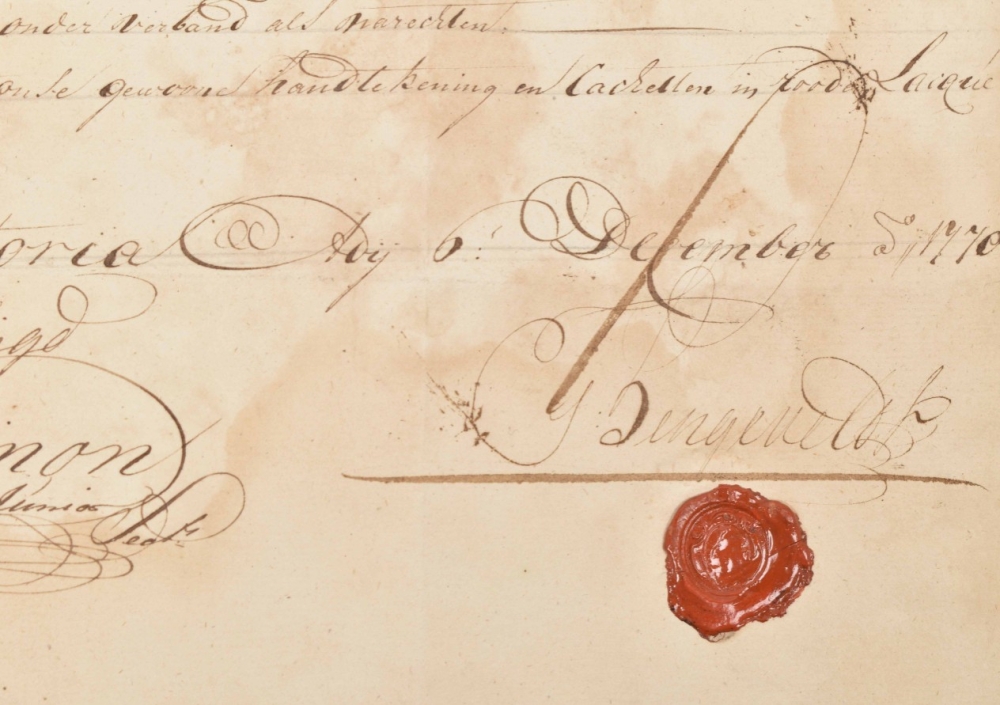 onder verband als narechten.
onse gewoone handtekening en Cachetten in roode Lacque
toria Adij 6. December Ao 1770
non
Junior Secrt